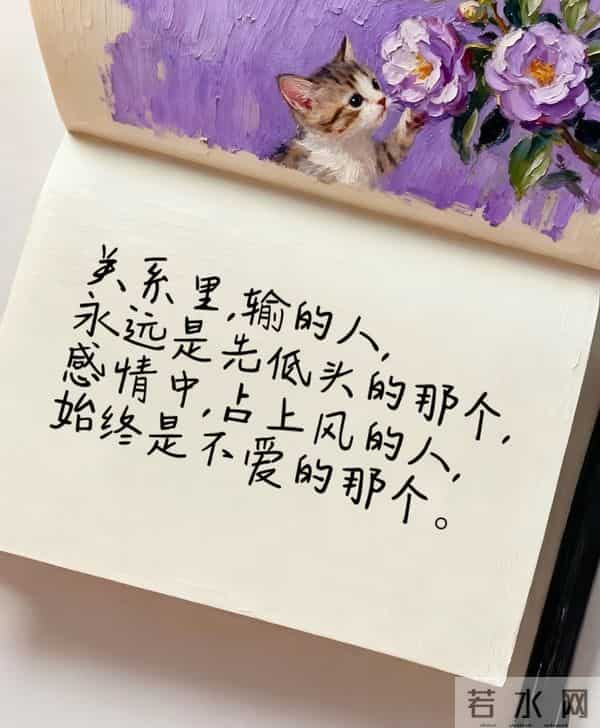 关系里,输的人,
永远是先低头的那个,
感情中,占上风的人,
始终是不爱的那个。
若水网